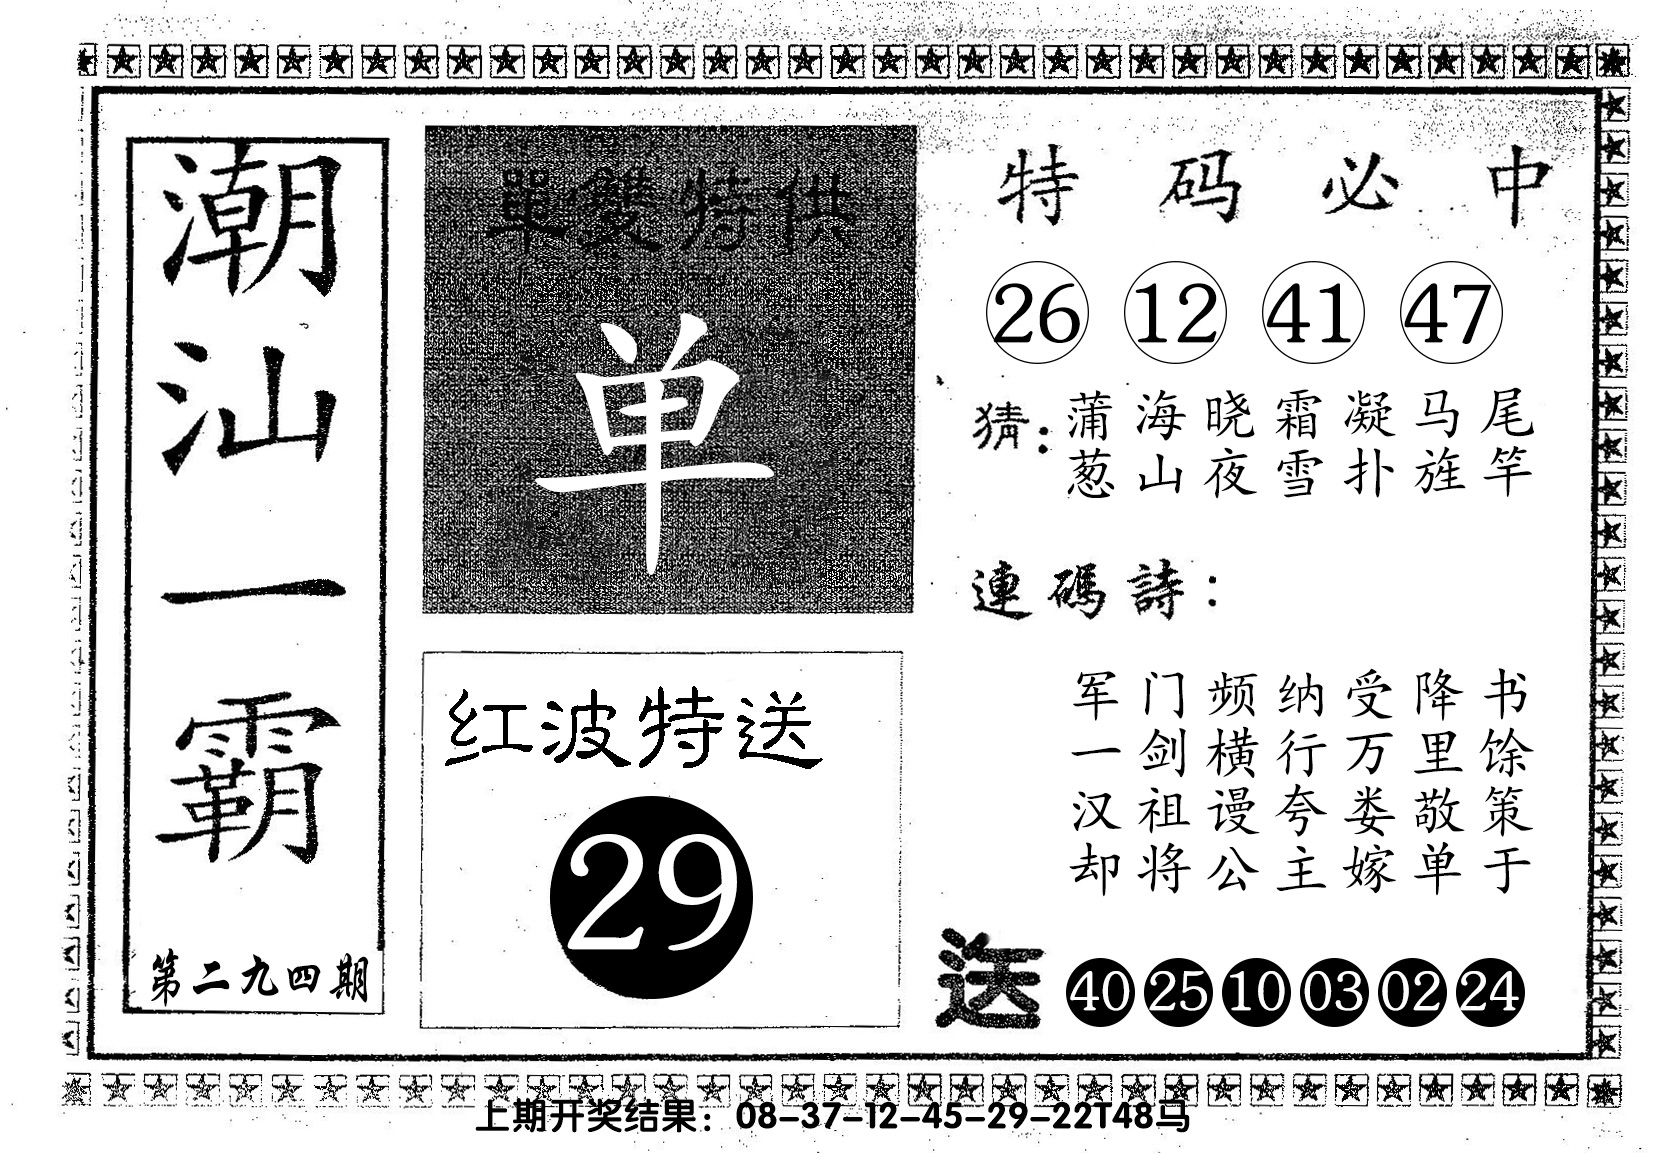 潮汕一霸
第二九四期
單雙特供
单
红波特送
29
特码必中
26 12 41 47
猜:
蒲海晓霜凝马尾
葱山夜雪扑旌竿
連碼詩:
军门频纳受降书
一剑横行万里馀
汉祖谩夸娄敬策
却将公主嫁单于
送 40 25 10 03 02 24
上期开奖结果：08-37-12-45-29-22T48马